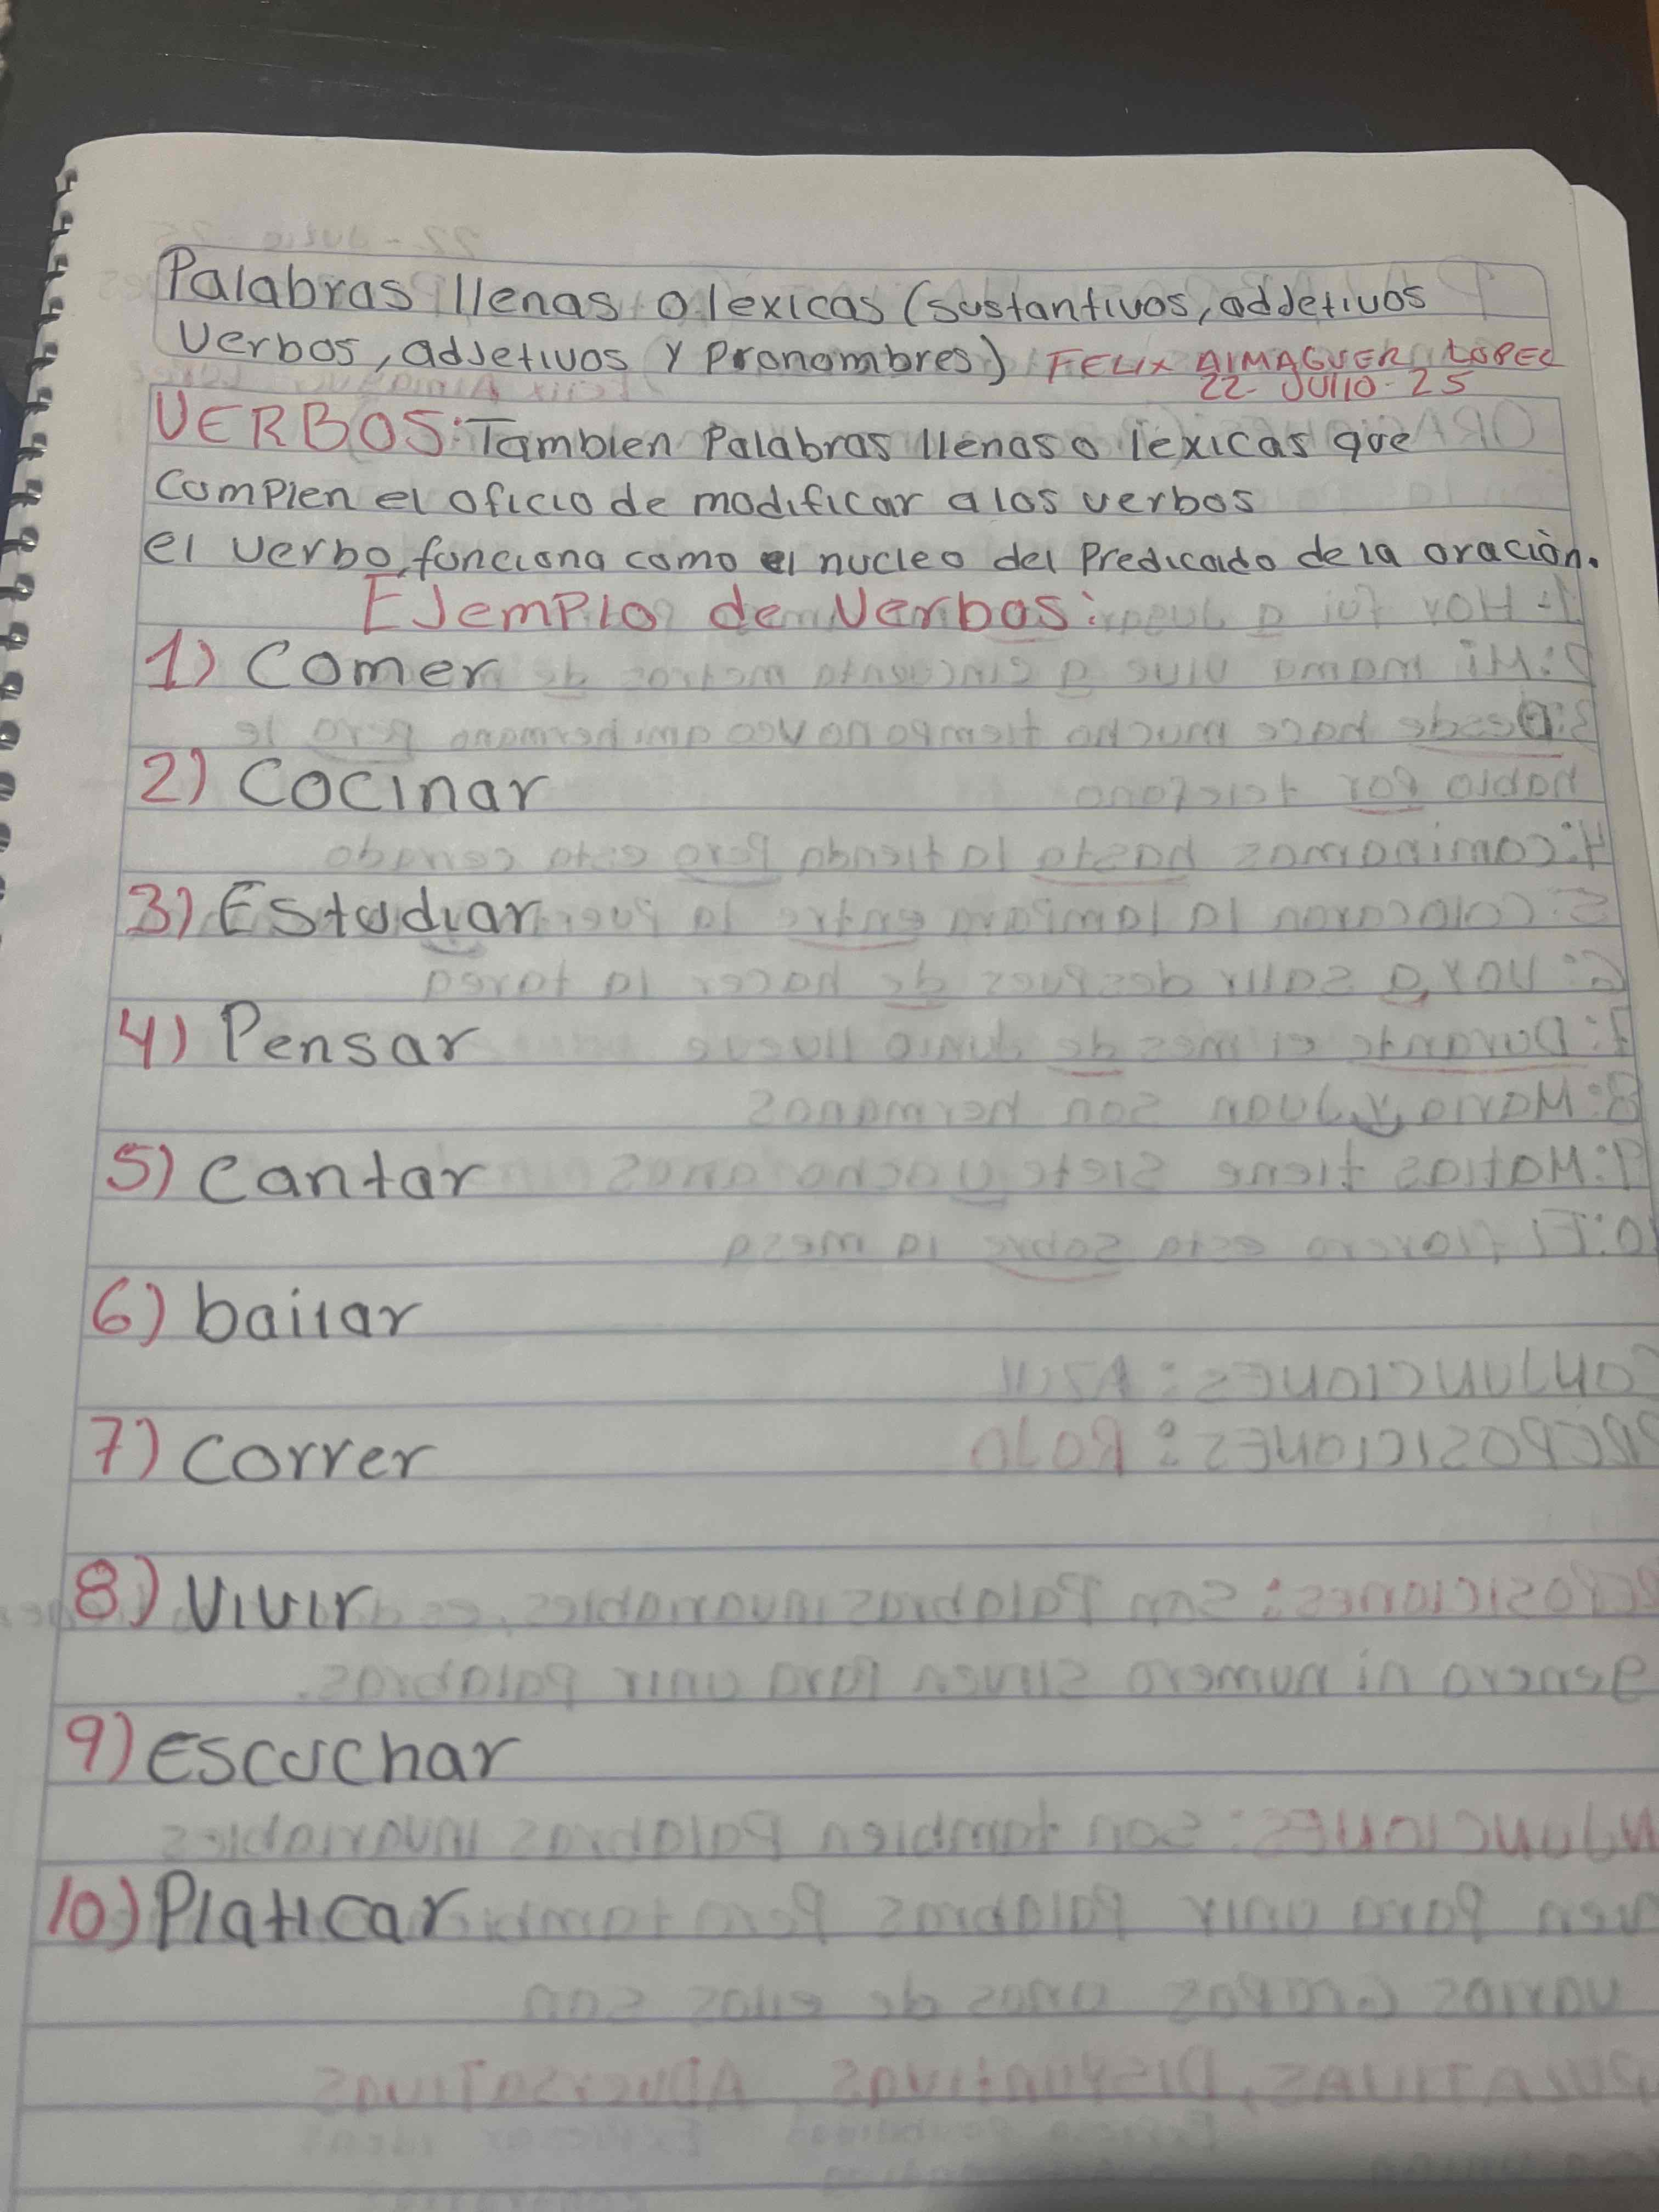 Palabras llenas o lexicas (sustantivos, addetivos
Verbos, adjetivos y Pronombres) FELIX AlMAGUER LOPEZ
22- JUlIO-25
VERBOS: Tambien Palabras llenas o lexicas que
Cumplen el oficio de modificar a los verbos
el verbo, funciona como el nucleo del Predicado de la oración.
EJemPlo de Verbos:
1) Comer
2) Cocinar
3) Estudiar
4) Pensar
5) Cantar
6) bailar
7) Correr
8) Vivir
9) Escuchar
10) Platicar